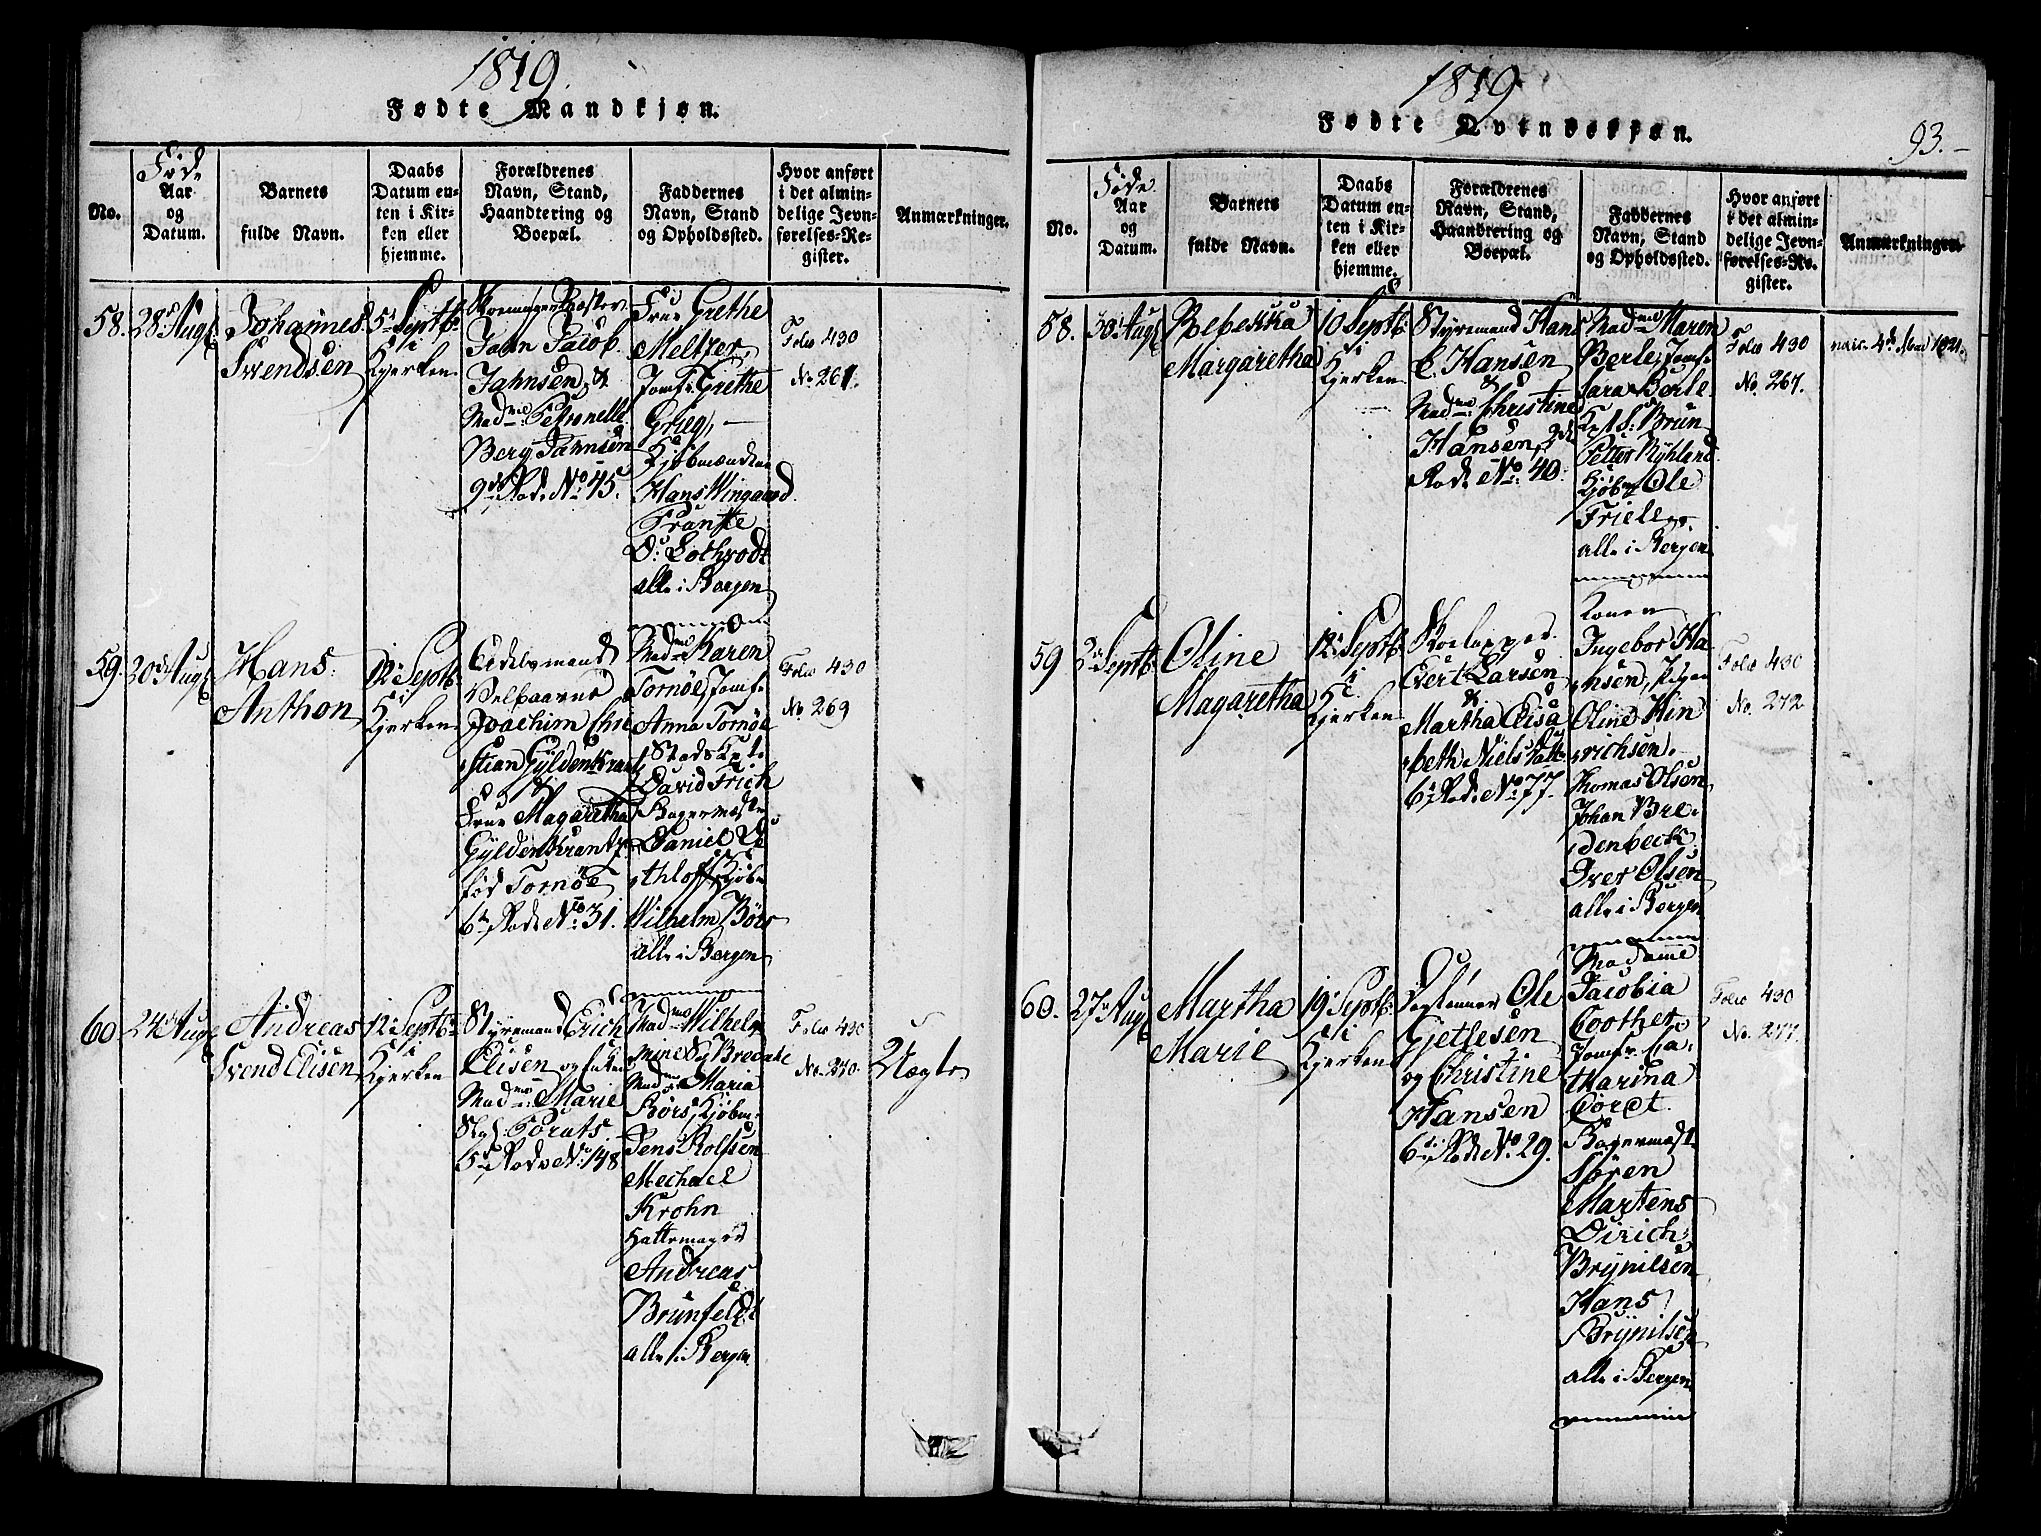 1819.
Fødte Mandkjøn.
No.
Føde
Aar
og
Datum.
Barnets
fulde Navn.
Daabs
Datum en-
ten i Kir-
ken eller
hjemme.
Forældrenes
Navn, Stand,
Haandtering og
Boepæl.
Faddernes
Navn, Stand
og Opholdssted.
Hvor anført
i det almin-
delige Jevn-
førelses-Re-
gister.
Anmærkninger.
58.
28d Augs
Johannes
Svendsen
5d Septb:
i
Kjerken
Joan Jacob
Jahnsen &
Madme Petronelle
Berg Jahnsen
9d Rode No 45.
Frue Grethe
Meltzer,
Jomf: Grethe
Grieg, —
Kjøbmændene
Hans Wingaard
Frantte
D: Lothrodt
alle i Bergen
Folio 430
No. 267.
59.
30d Augs
Hans
Anthon
12d Septb:
i
Kjerken
Edelsmand
Velbaarne
Joachim Chri
stian Gyldenkrantz
&
Frue Magaretha
Gyldenkrantz
fød Tornöe
6d Rode No 31.
Madme Karen
Tornöe, Jomf:
Anna Tornöe
Stads Kpt.
David Frich
Bagermester
Daniel
Kjøbm
Wilhelm Börs
alle i Bergen
Folio 430
No. 269
60
24d Augs
Andreas
Svend Elisen
12d Septb:
i
Kjerken
Styrmand Erich
Elisen og
Madme Marie
5d Rode No 148
Madme Wilhel
mine Sy Bredahl
Madme Maria
Börs, Kjøbm:
Jens Rolfsen
Mechael
Krohn
Hattemager
Andreas
Brunfeldt
alle i Bergen
Folio 430
No. 270
Uægte
1819
Fødte Qvindekjøn.
93.
No.
Føde
Aar
og
Datum.
Barnets
fulde Navn.
Daabs
Datum en-
ten i Kir-
ken eller
hjemme.
Forældrenes
Navn, Stand,
Haandtering og
Boepæl.
Faddernes
Navn, Stand
og Opholdssted.
Hvor anført
i det almin-
delige Jevn-
førelses-Re-
gister.
Anmærkninger.
58.
30d Augs
Rebekka
Margaretha
10 Septb:
i
Kjerken
Styrmand Hans
C. Hansen
&
Madme Christine
Hansen, 2d
Rode No: 40.
Madme Maren
Berle, Jomf:
Sara Berle
Kpt S: Brun
Petter Ryhland
Kjøbm Ole
Friele
alle i Bergen
Folio 430
No. 267.
vacc. 4d Mai 1821.
59
3d Septb:
Oline
Magaretha
12d Septb:
i
Kjerken
Evert Larsen
&
Martha Elisa
beth Niels Datt:
6d Rode No 77.
Konen
Ingebor Ha
nsen, Pigen
Oline Hin
richsen.
Thomas Olsen
Johan Bre
denbeck
Iver Olsen
alle i Bergen
Folio 430
No. 272
60.
27d Augs
Martha
Marie
19d Septb:
i
Kjerken
Ole
Gjetlesen
og Christine
Hansen
6d Rode No 29.
Madamme
Jacobia
Coother
Jomfr: Ca
tharina
Coret
Bagermest
Sören
Martens
Dirich
Brynilsen
Hans
Brynilsen
alle i Bergen
Folio 430
No. 277.